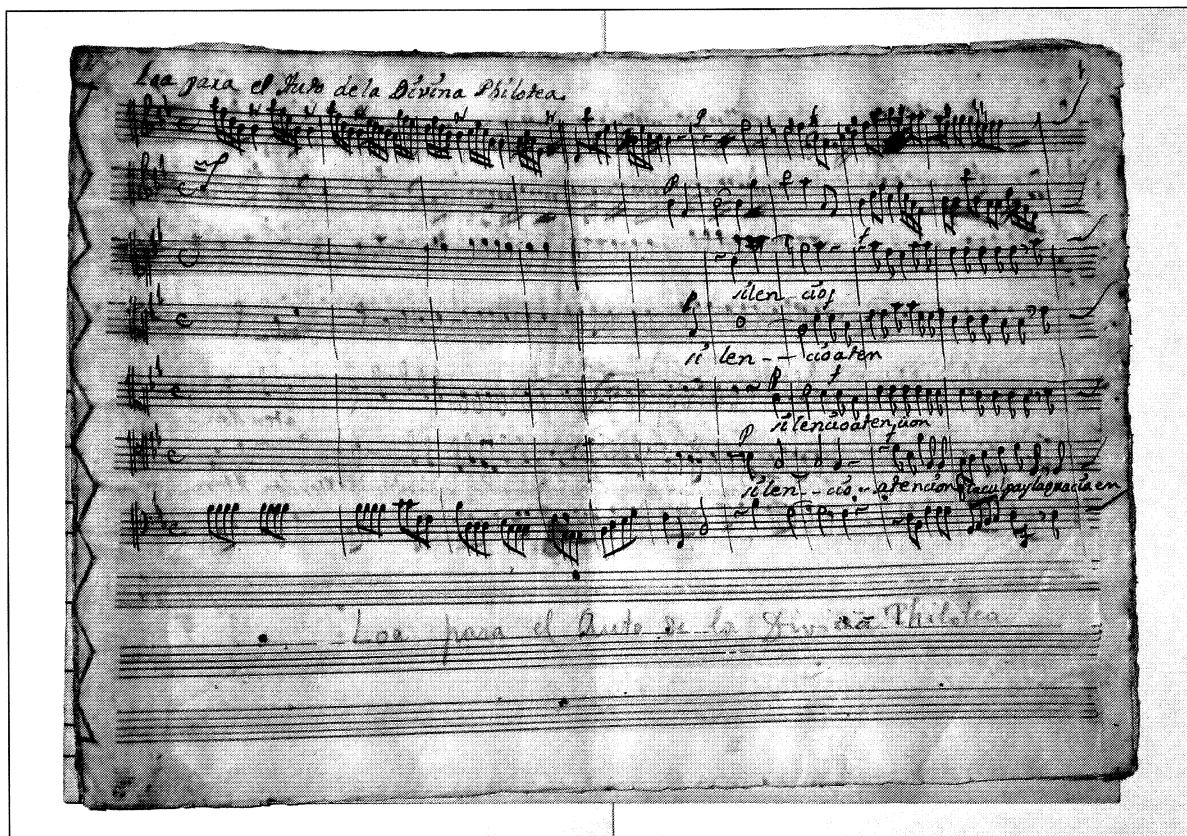 Loa para el Auto de la Divina Philotea.
silen - cio,
si len - - cio aten
silencio atencion
silen - - cio - atencion la culpa y la gracia en
Loa para el Auto de la Divina Philotea